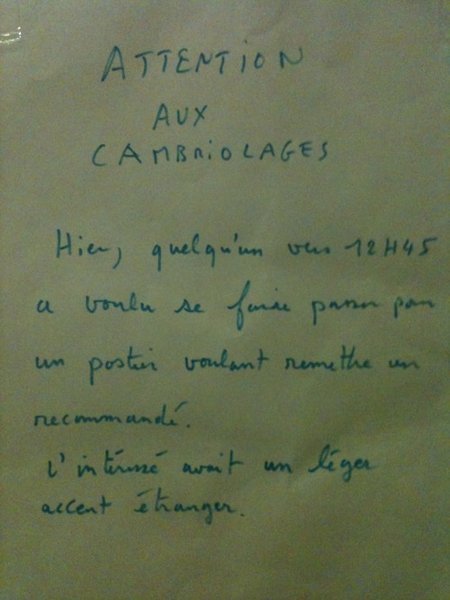 ATTENTION
AUX
CAMBRIOLAGES
Hier, quelqu'un vers 12H45
a voulu se faire passer pour
un postier voulant remettre un
recommandé.
L'intéressé avait un léger
accent étranger.